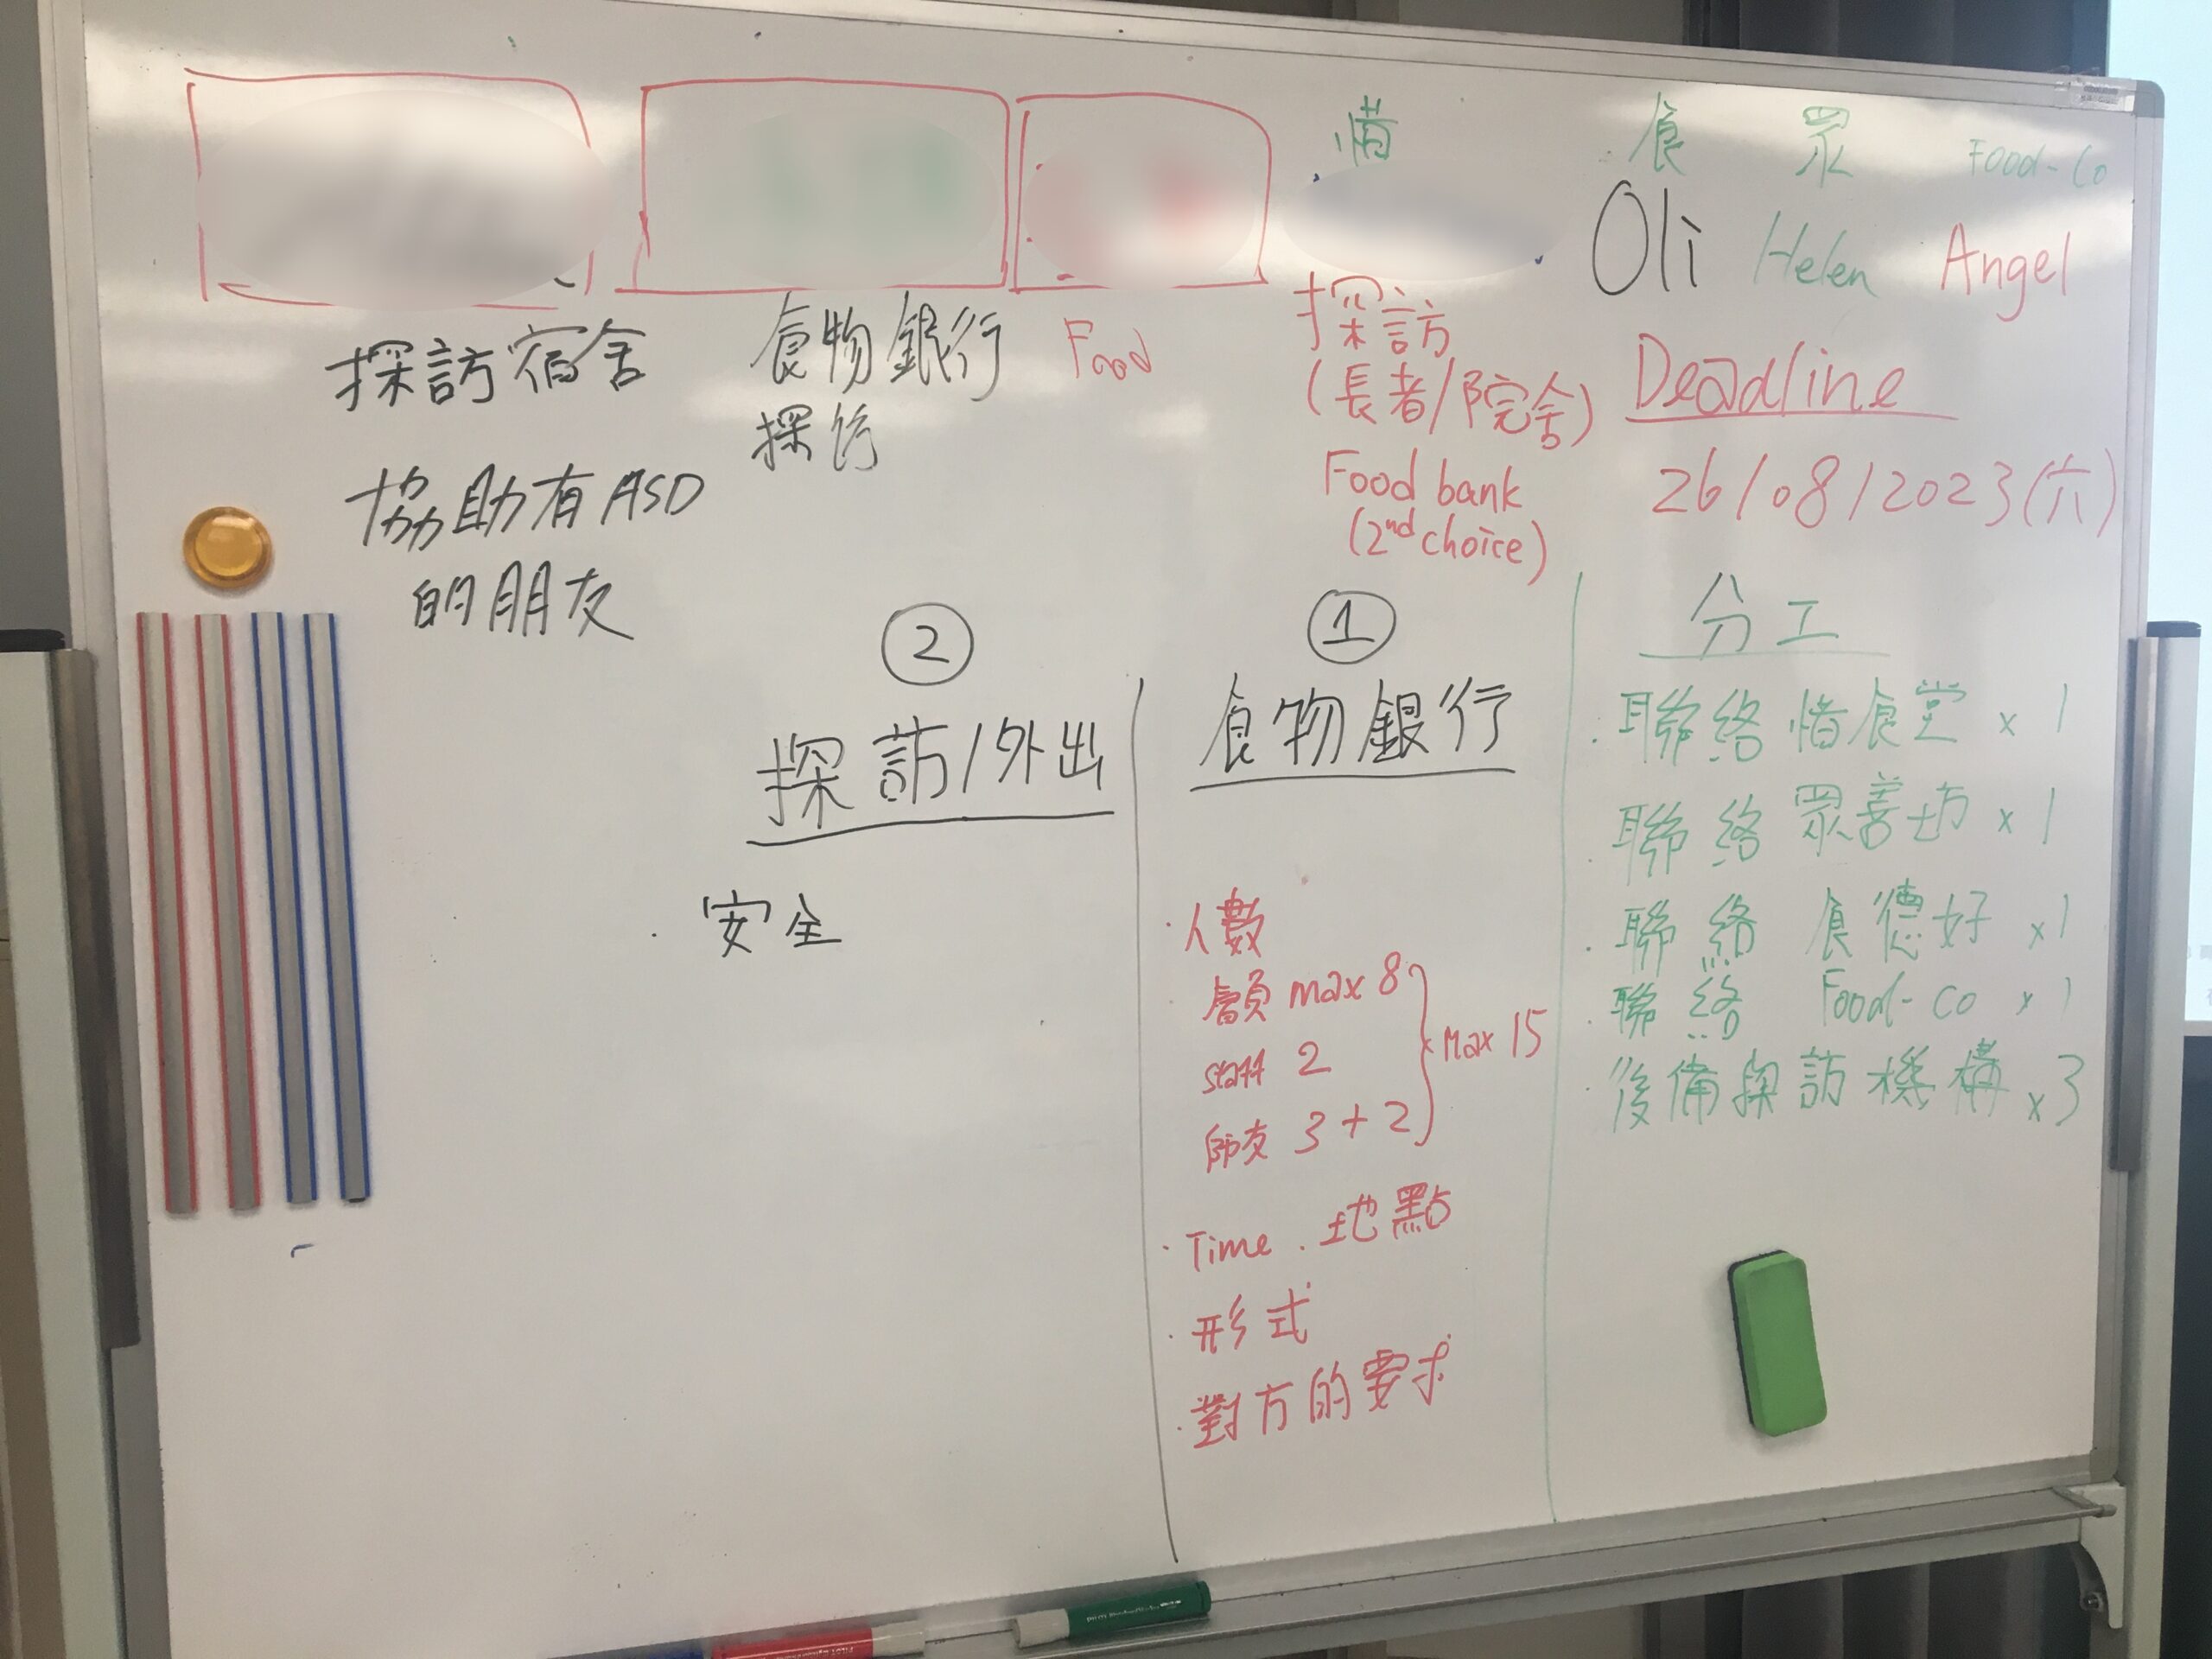 惜 食 眾 Food-Co
Oli Helen Angel
探訪宿舍
協助有ASD
的朋友
食物銀行
探訪
Food
探訪
(長者/院舍)
Food bank
(2nd choice)
Deadline
26/08/2023(六)
②
探訪/外出
· 安全
①
食物銀行
· 人數
max 8
staff 2
師友 3+2
Max 15
· Time . 地點
· 形式
· 對方的要求
分工
· 聯絡惜食堂 x 1
· 聯絡眾善坊 x 1
· 聯絡 食德好 x1
· 聯絡 Food-Co x 1
· 後備探訪機構 x3